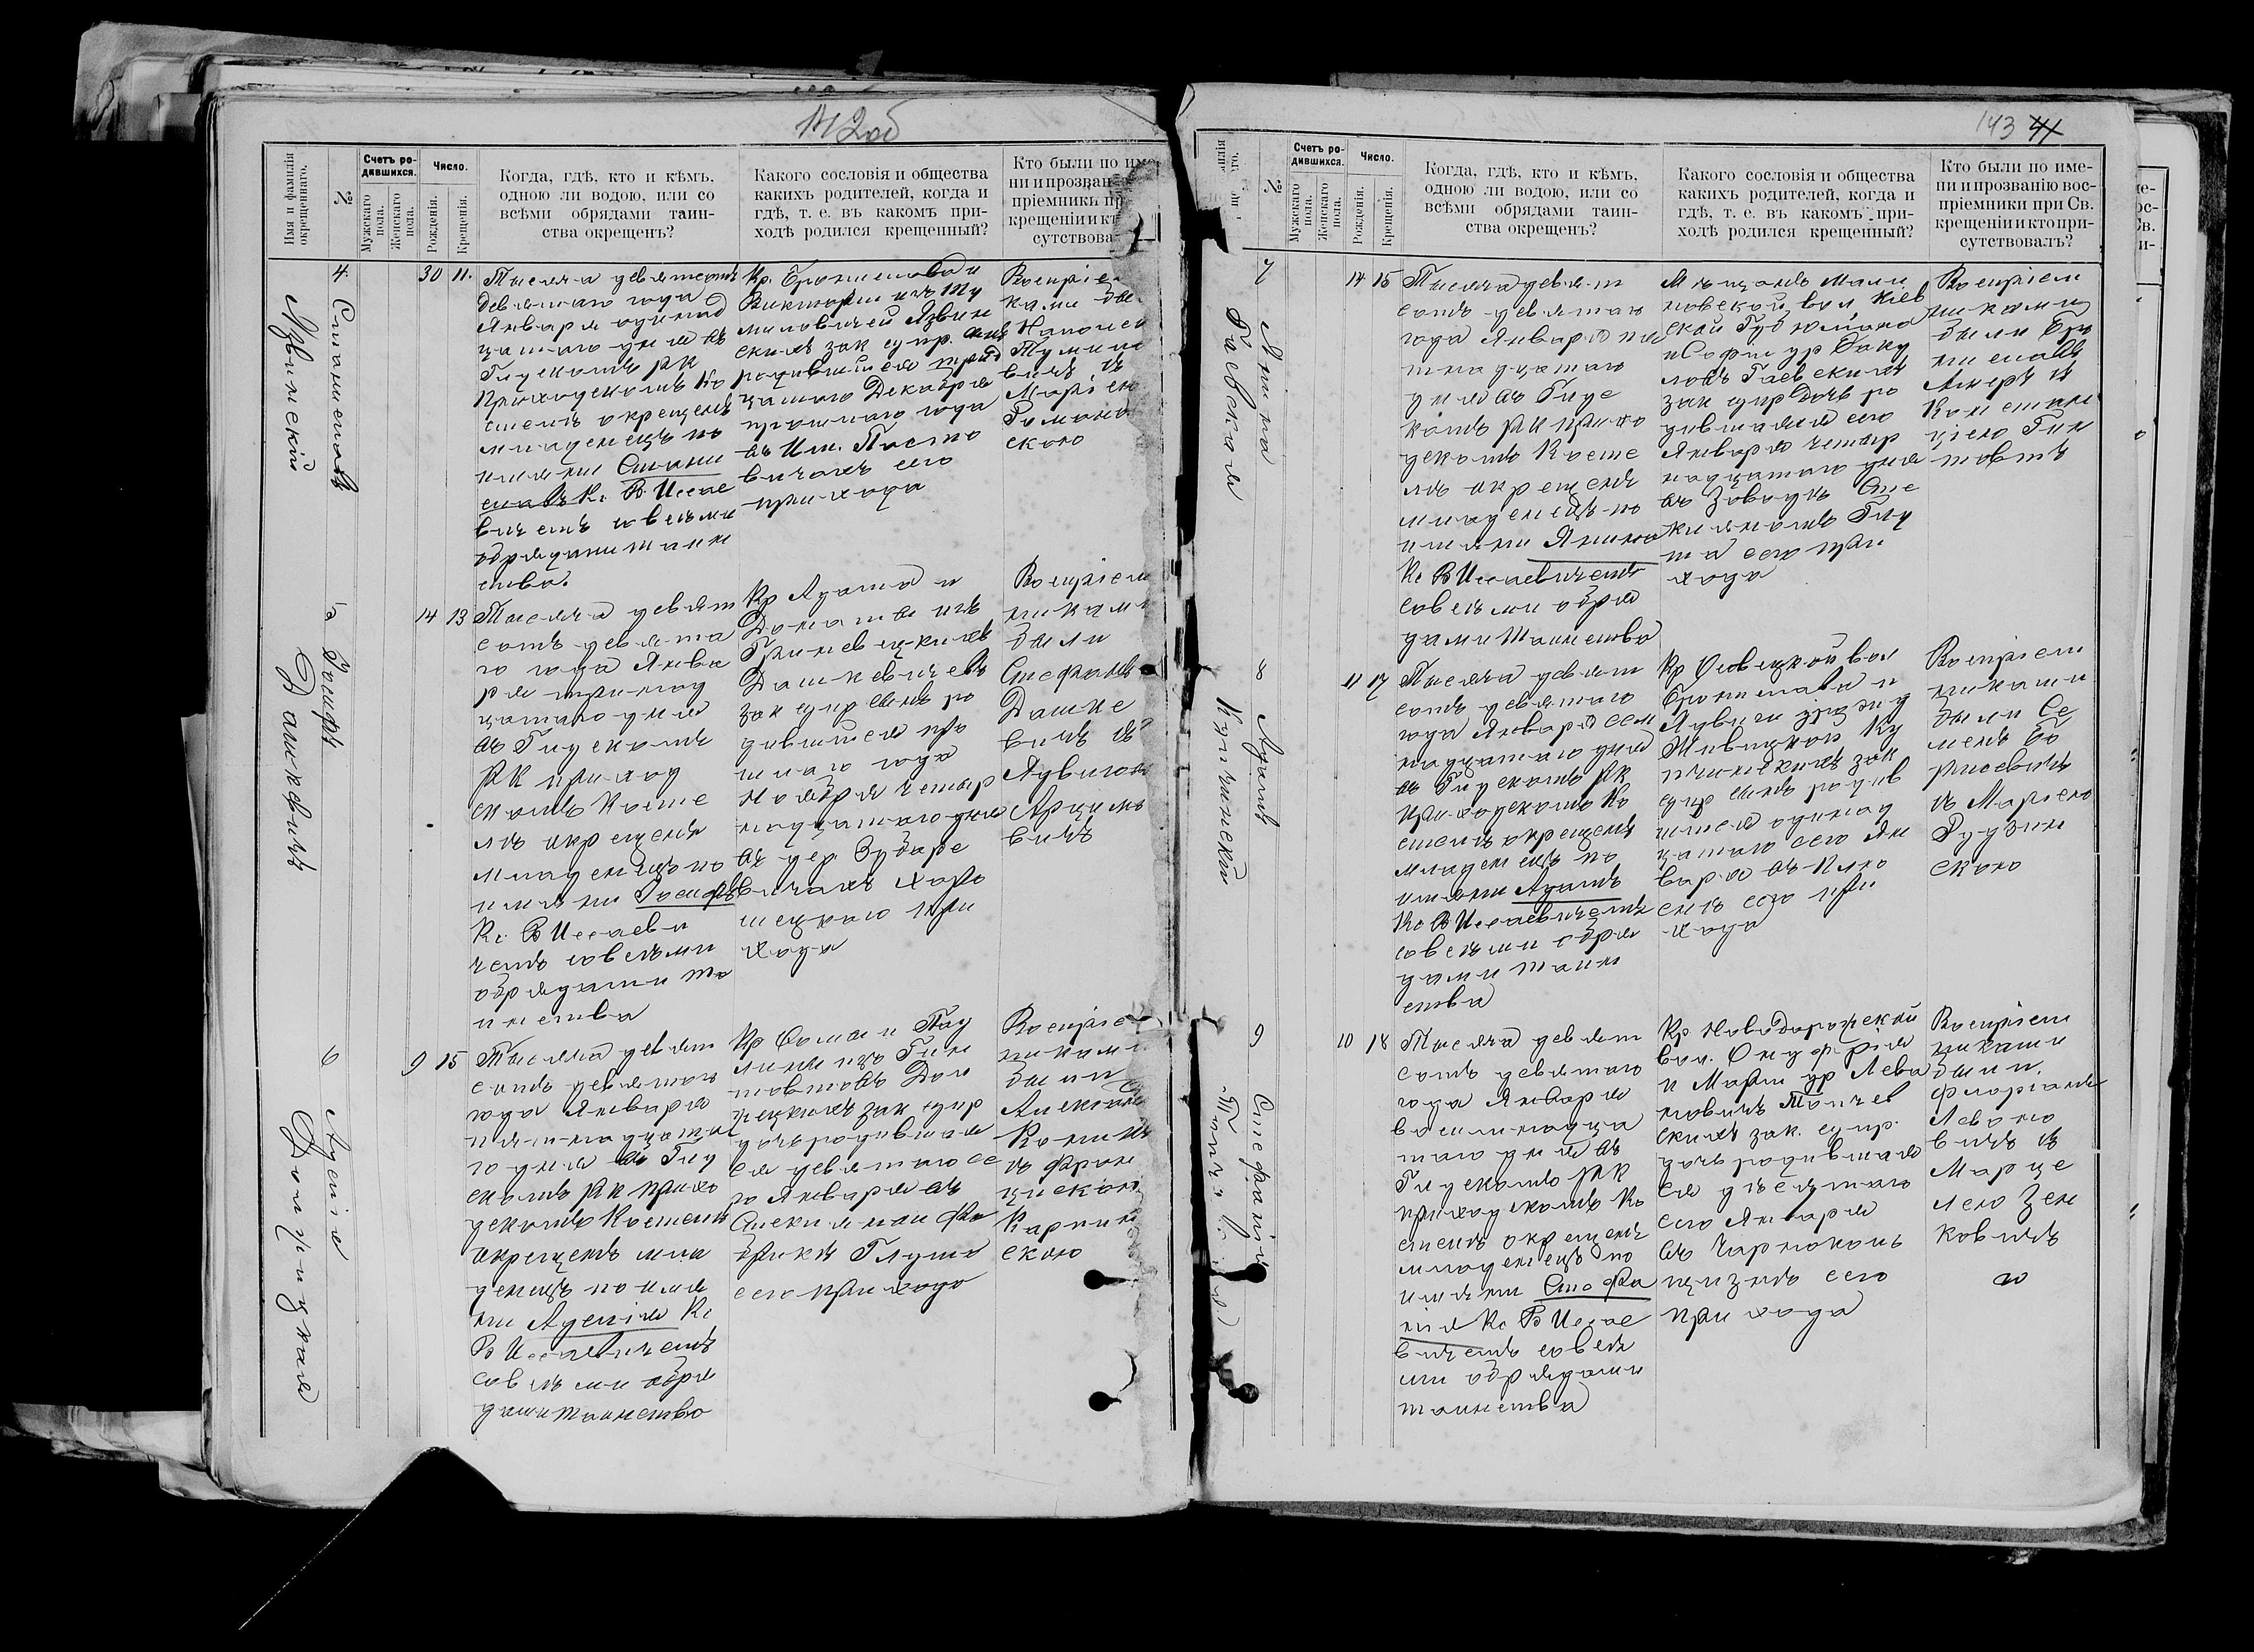 142об
Имя и фамилія
окрещеннаго.
№
Счетъ ро-
дившихся.
Мужскаго
пола.
Женскаго
пола.
Число.
Рожденія.
Крещенія.
Когда, гдѣ, кто и кѣмъ,
одною ли водою, или со
всѣми обрядами таин-
ства окрещенъ?
Какого сословія и общества
какихъ родителей, когда и
гдѣ, т. е. въ какомъ при-
ходѣ родился крещенный?
Кто были по име
ни и прозван
пріемники пр
крещеніи и кт
сутствова
4
Станиславъ
Язвинскій
30 11.
Тысяча девятьсотъ
девятаго года
Января одинад
цатаго дня въ
Глускомъ РК
приходскомъ Ко
стелѣ окрещенъ
младенецъ по
имени Стани
славъ Кс В Иссае
вичемъ со всѣми
обрядами таин
ства.
Кр. Брониславъ и
Викторіи изъ Ту
миловичей Язвин
скихъ зак супр. сынъ
родившійся трид
цатаго Декабря
прошлаго года
въ Им.
вичахъ сего
прихода
Воспріе
ками бы
Тумило
вичъ съ
Маріею
Романо
скою
5
Іосифъ
Дашкевичъ
14 13
Тысяча девят
сотъ девята
го года Янва
ря тринад
цатаго дня
въ Глускомъ
РК приход
скомъ Косте
лѣ окрещенъ
младенецъ по
имени Іосифъ
Кс В Иссаеви
чемъ со всѣми
обрядами та
инства
Кр Адама и
Донаты изъ
Гриневицкихъ
Дашкевичевъ
зак супр сынъ ро
дившійся про
шлаго года
Ноября четыр
надцатаго дня
въ дер. Зубаре
вичахъ
шецкаго при
хода
Воспріем
никами
были
Стефанъ
Дашке
вичъ съ
Ядвигою
Арцимъ
вичъ
6
Аделія
9 15
Тысяча девят
сотъ девятаго
года Января
пятнадцата
го дня въ Глу
скомъ РК прихо
дскомъ Костелѣ
окрещенъ мла
денецъ по име
ни Аделія Кс
В Иссаевичемъ
со всѣми обря
дами таинства
Кр Ѳомы и Пау
лины изъ Гин
товтовъ
зак супр
дочь родившая
ся девятаго се
го Января въ
Стеклянной Фа
брикѣ Глуша
сего прихода
Воспріе
никами
были
съ Фран
цискою
скою
143 41
№
Счетъ ро-
дившихся.
Мужскаго
пола.
Женскаго
пола.
Число.
Рожденія.
Крещенія.
Когда, гдѣ, кто и кѣмъ,
одною ли водою, или со
всѣми обрядами таин-
ства окрещенъ?
Какого сословія и общества
какихъ родителей, когда и
гдѣ, т. е. въ какомъ при-
ходѣ родился крещенный?
Кто были по име-
ни и прозванію вос-
пріемники при Св.
крещеніи и кто при-
сутствовалъ?
7
Янина
Гаевская
14 15
Тысяча девят
сотъ девятаго
года Января пят
надцатаго
дня въ Глус
комъ РК прихо
дскомъ Косте
лѣ окрещенъ
младенецъ по
имени Янина
Кс В Иссаевичемъ
со всѣми обря
дами таинства
Мѣщанъ
новской вол Кіев
ской Губ Юліана
и Софіи ур
Гаевскихъ
зак супр дочь ро
дившаяся сего
Января четыр
надцатаго дня
въ Заводѣ Сте
клянномъ Глу
ша сего при
хода
Воспріем
никами
были Бро
ниславъ
съ
Констан
ціею Гин
товтъ
8
Адамъ
Купчинскій
11 17
Тысяча девят
сотъ девятаго
года Января сем
надцатаго дня
въ Глускомъ РК
приходскомъ Ко
стелѣ окрещенъ
младенецъ по
имени Адамъ
Кс В Иссаевичемъ
со всѣми обря
дами таин
ства
Кр Осовецкой вол
Бронислава и
Ядвиги урожд
Ку
пчинскихъ зак
супр сынъ родив
шійся одинад
цатаго сего Ян
варя въ
сего при
хода
Воспріем
никами
были Се
менъ Бо
рисевичъ
съ Маріею
Рудзин
скою
9
Стефанія
10 18
Тысяча девят
сотъ девятаго
года Января
восемнадца
таго дня въ
Глускомъ РК
приходскомъ Ко
стелѣ окрещенъ
младенецъ по
имени Стефа
нія Кс В Иссае
вичемъ со всѣ
ми обрядами
таинства
Кр Новодорожской
вол. Онуфрія
и Маріи ур Лева
новичъ
скихъ зак. супр.
дочь родившая
ся десятаго
сего Января
въ
сего
прихода
Воспріем
никами
были
Флоріанъ
Левоно
вичъ съ
Марце
лею Зен
ковичъ